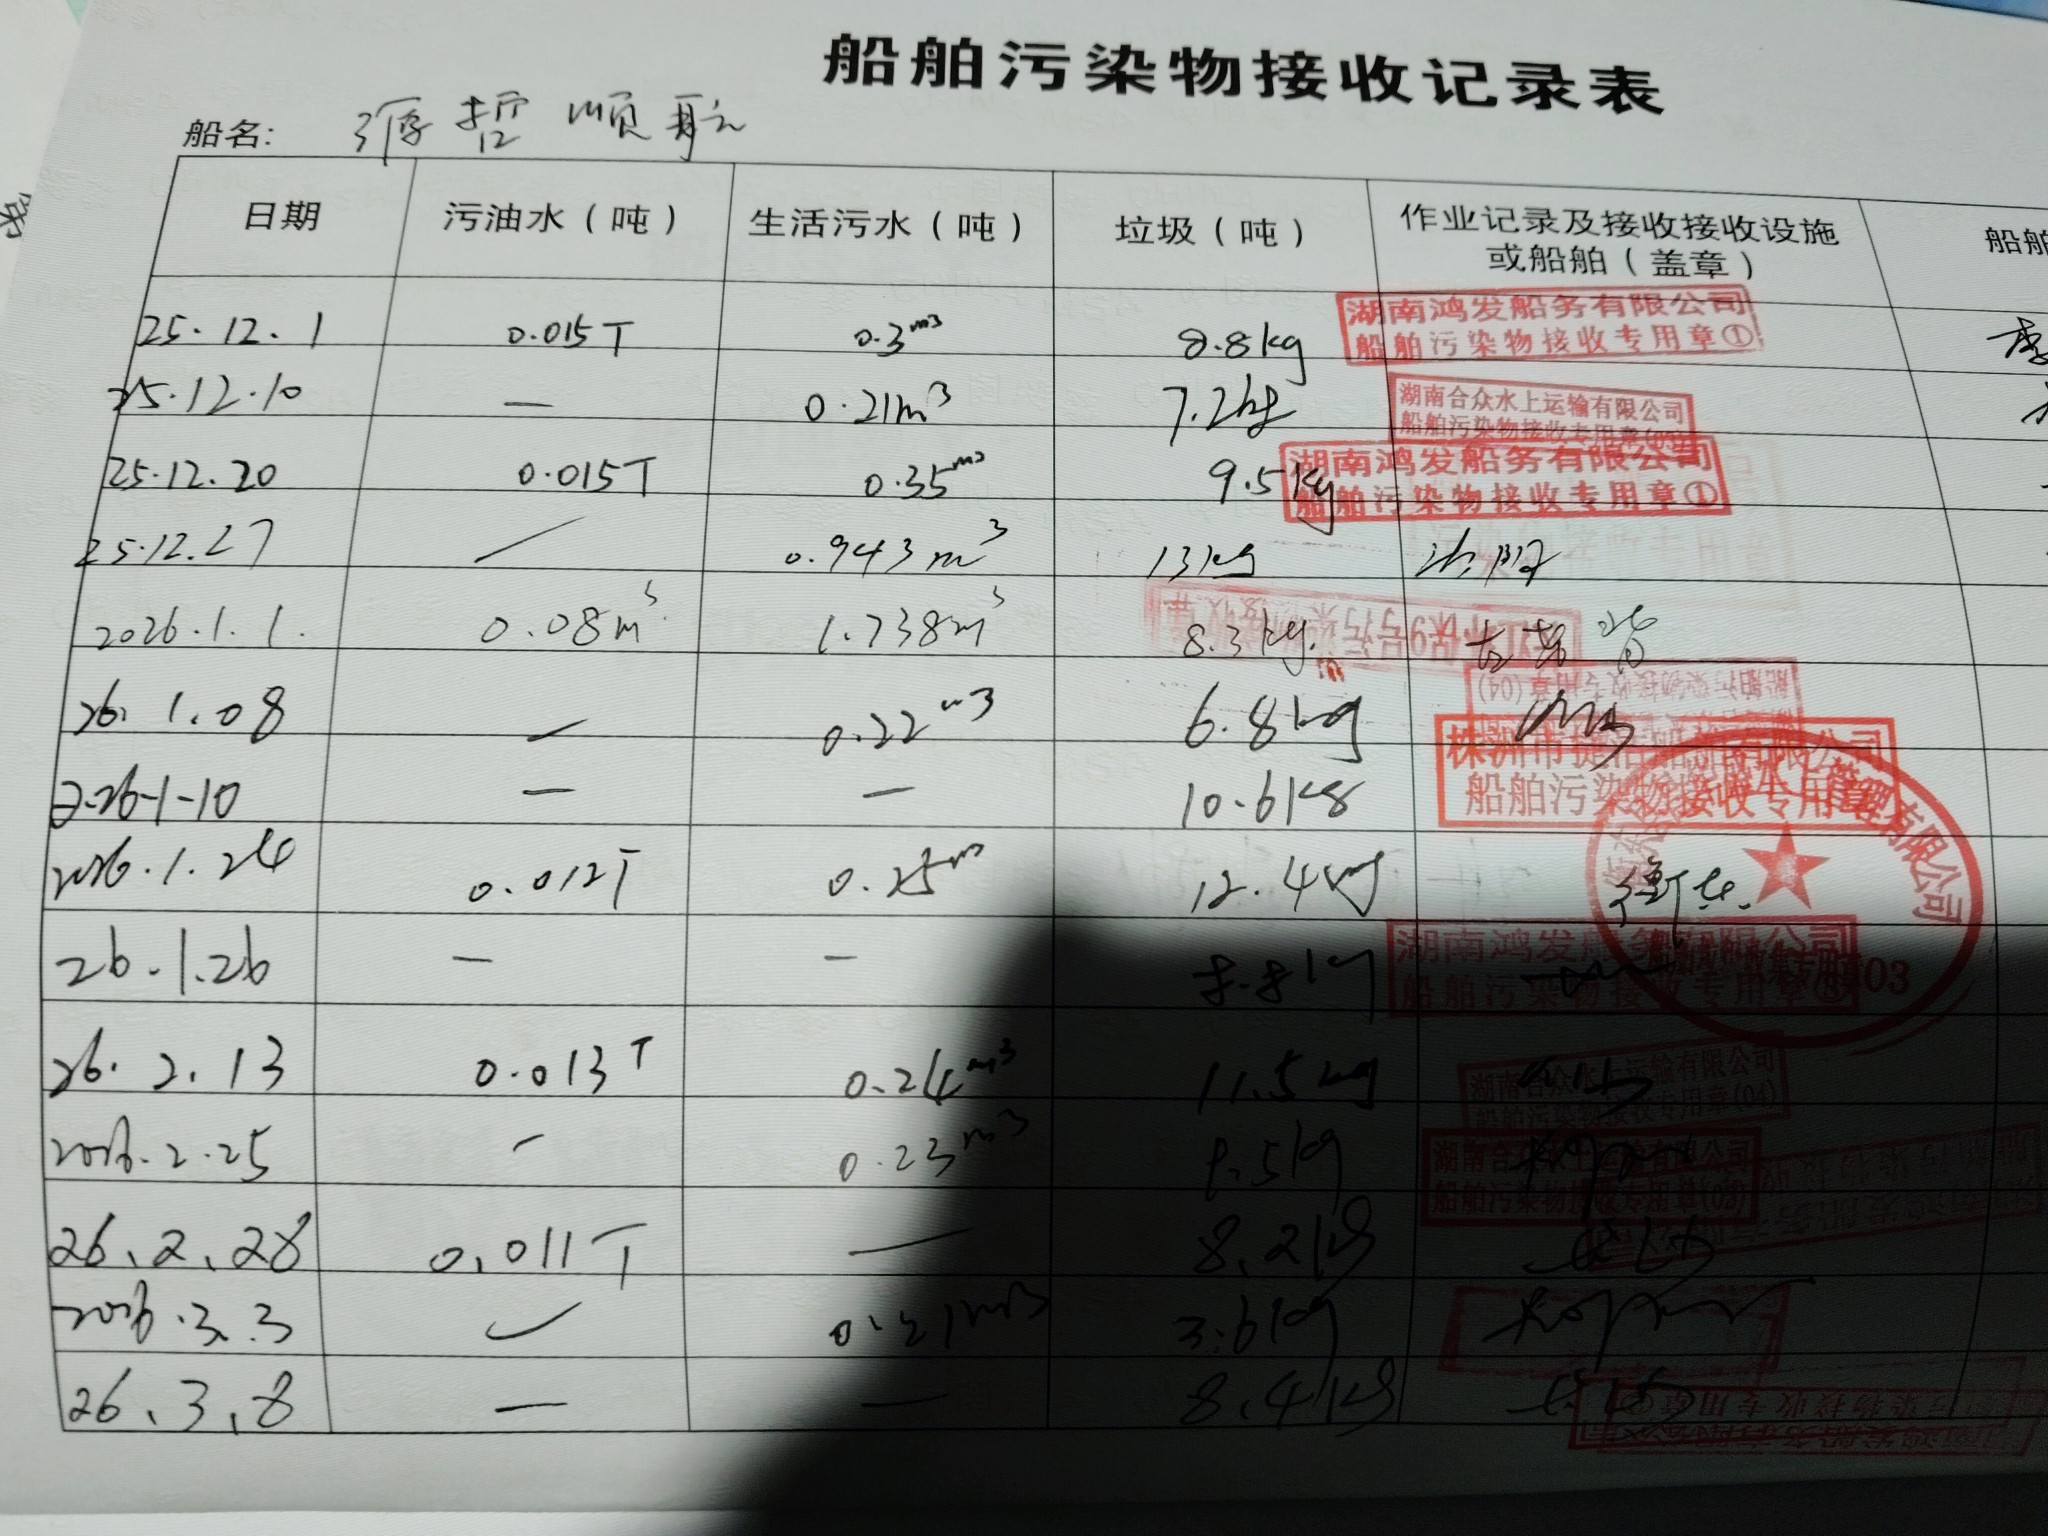 船舶污染物接收记录表
船名: 哲顺航
日期 污油水（吨） 生活污水（吨） 垃圾（吨） 作业记录及接收接收设施 船舶
或船舶（盖章）
25.12.1 0.015T 0.3m3 8.8kg
湖南鸿发船务有限公司
船舶污染物接收专用章①
25.12.10 — 0.21m3 7.2kg
湖南合众水上运输有限公司
船舶污染物接收专用章(03)
25.12.20 0.015T 0.35m3 9.5kg
湖南鸿发船务有限公司
船舶污染物接收专用章①
25.12.27 / 0.943m3 13kg
2026.1.1. 0.08m3 1.738m3 8.3kg.
26.1.08 — 0.22m3 6.8kg
船舶污染物接收专用章(04)
2.26-1-10 — — 10.6kg
株洲市 有限公司
船舶污染物接收专用章
2026.1.24 0.012T 0.25m3 12.4kg
26.1.26 — — 8.8kg
湖南鸿发船务有限公司
船舶污染物接收专用章
26.2.13 0.013T 0.24m3 11.5kg
湖南合众水上运输有限公司
船舶污染物接收专用章(04)
2026.2.25 - 0.23m3 9.5kg
湖南合众水上运输有限公司
船舶污染物接收专用章(03)
26.2.28 0.011T — 8.2kg
2026.3.3 0.21m3 3.6kg
26.3.8 — — 8.4kg